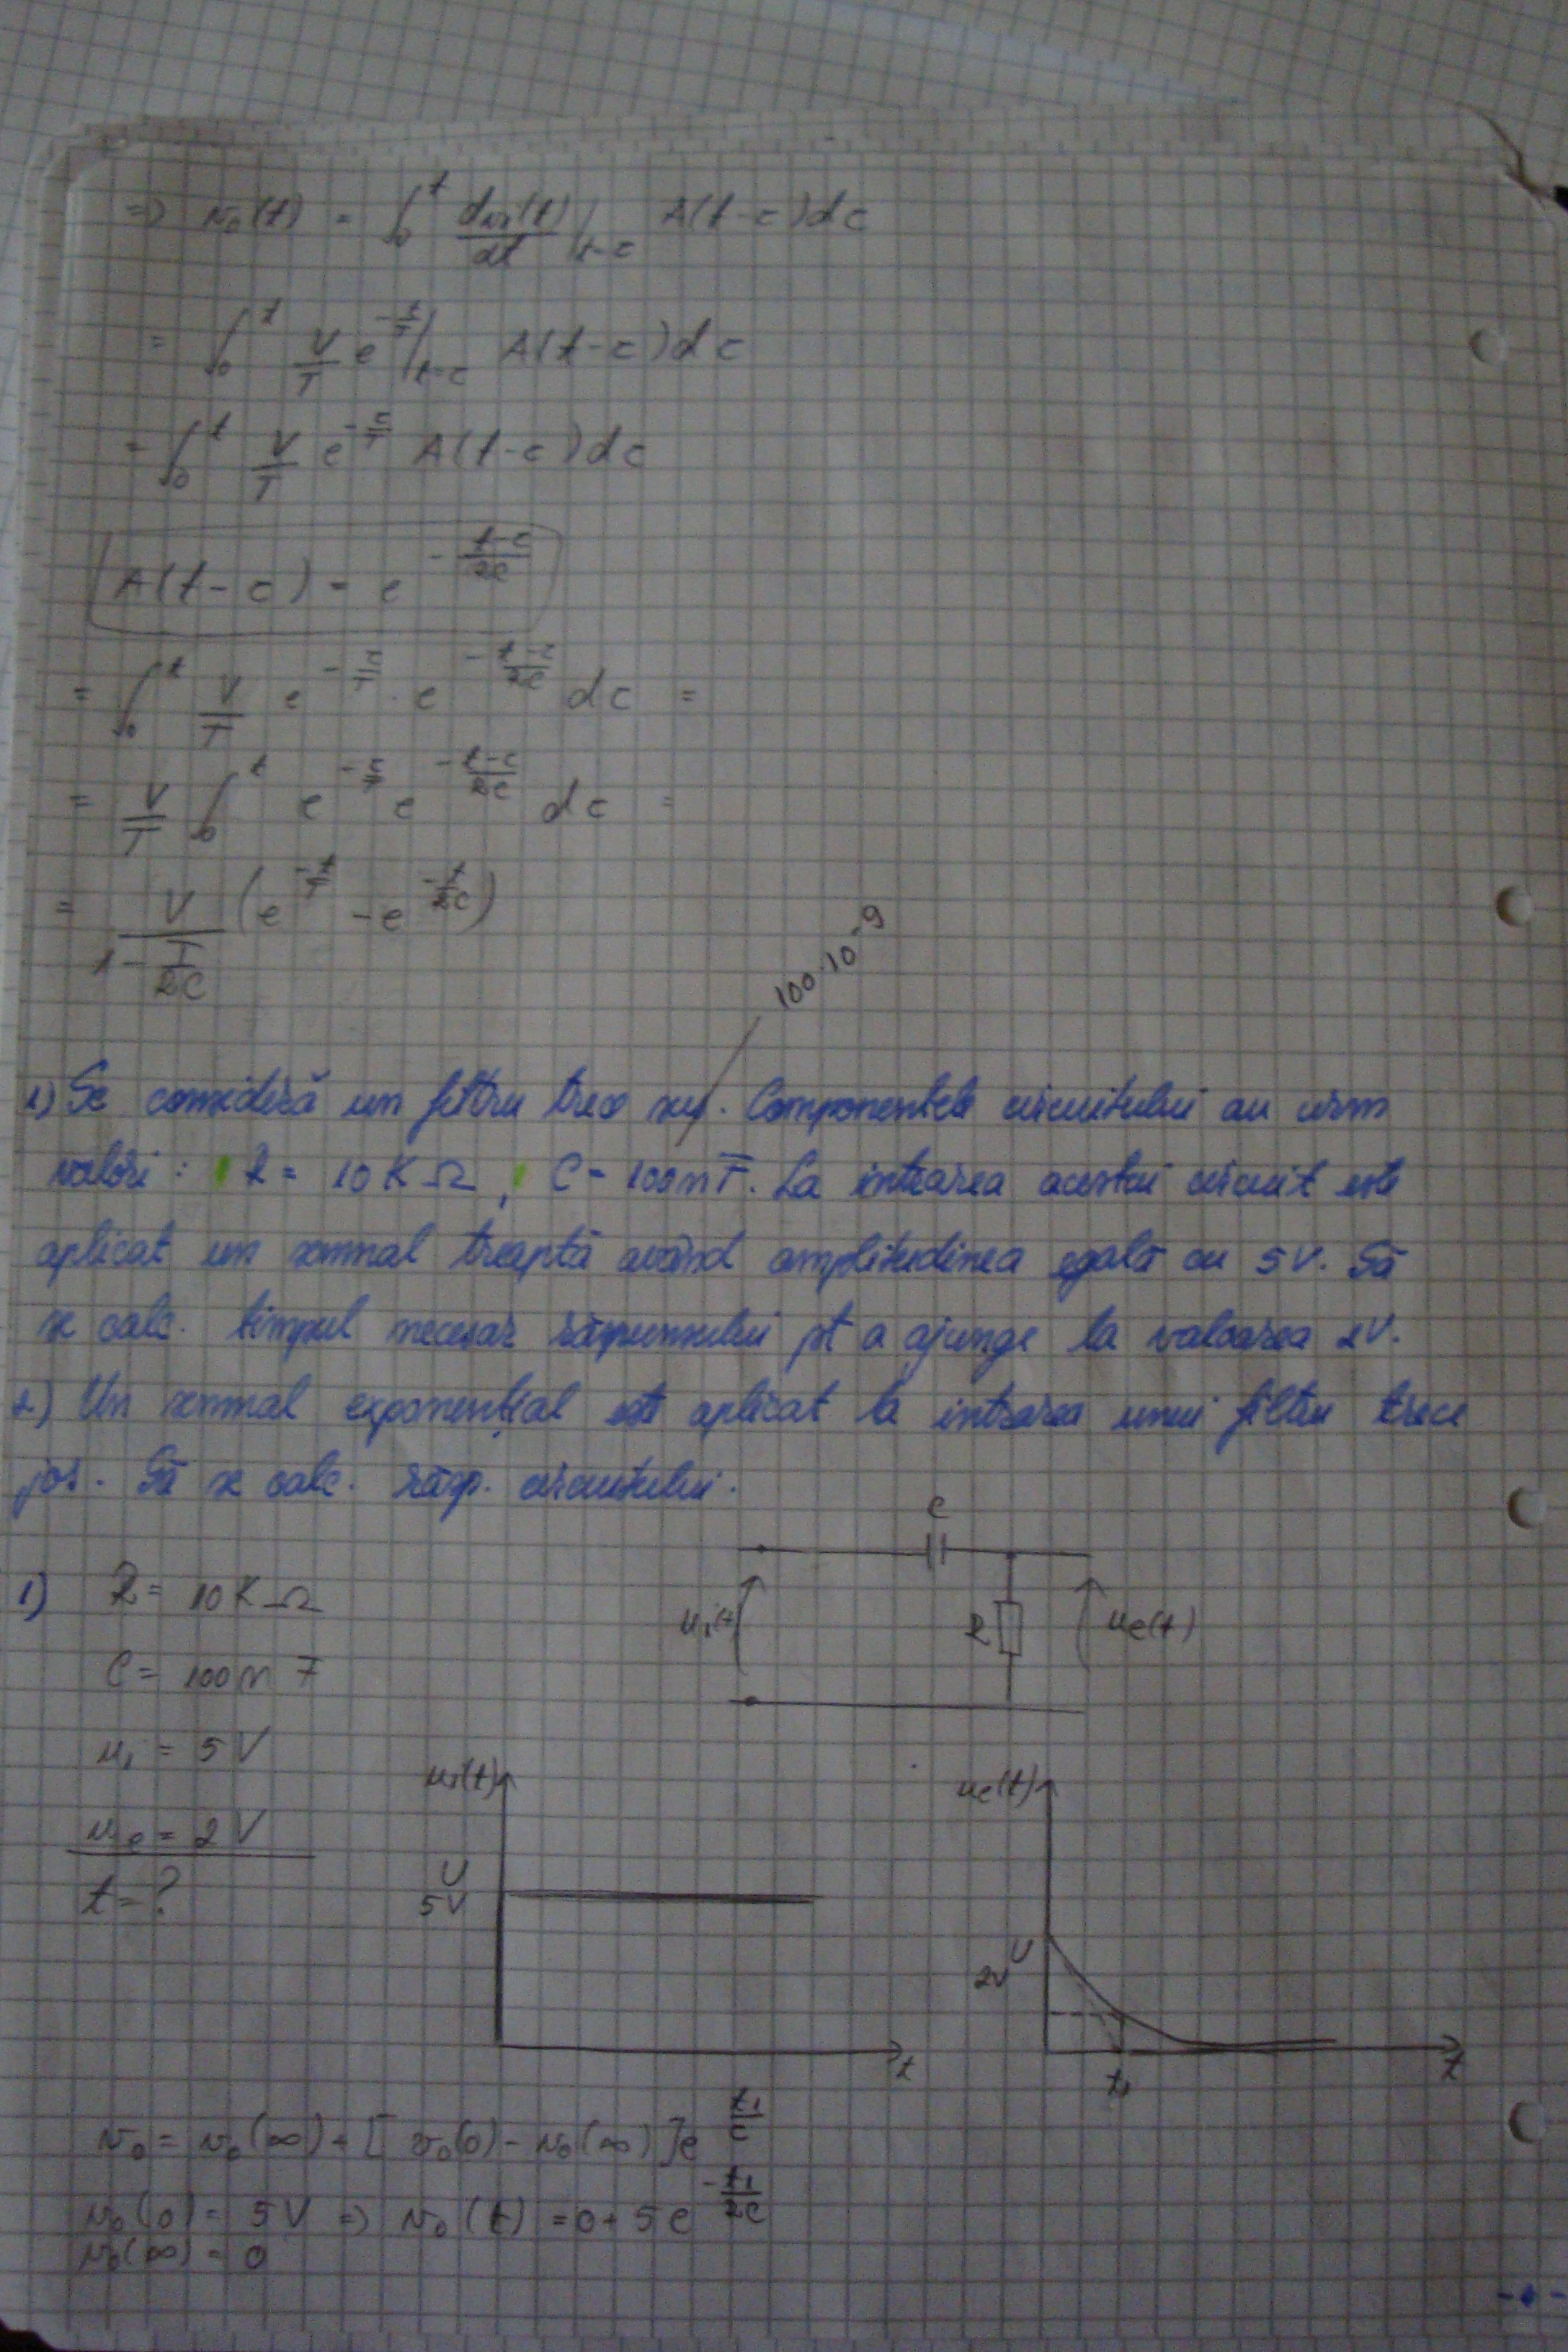 => v₀(t) = ∫₀ᵗ dvᵢ(t)/dt |t=τ A(t-τ)dτ
= ∫₀ᵗ V/T e^(-t/T) |t=τ A(t-τ)dτ
= ∫₀ᵗ V/T e^(-τ/T) A(t-τ)dτ
A(t-τ) = e^(-(t-τ)/RC)
= ∫₀ᵗ V/T e^(-τ/T) · e^(-(t-τ)/RC) dτ =
= V/T ∫₀ᵗ e^(-τ/T) e^(-(t-τ)/RC) dτ =
= V/(1-T/RC) (e^(-t/T) - e^(-t/RC))
100·10^-9
1) Se consideră un filtru trece sus. Componentele circuitului au urm
valori: R = 10 KΩ, C = 100nF. La intrarea acestui circuit este
aplicat un semnal treaptă având amplitudinea egală cu 5V. Să
se calc. timpul necesar răspunsului pt a ajunge la valoarea 2V.
2) Un semnal exponențial este aplicat la intrarea unui filtru trece
jos. Să se calc. răsp. circuitului.
C
1) R = 10 KΩ
uᵢ(t) R ue(t)
C = 100 nF
uᵢ = 5 V
uᵢ(t) ue(t)
ue = 2 V
t = ?
U
5V
U
2V
t t₁ t
v₀ = v₀(∞) + [v₀(0) - v₀(∞)]e^(t₁/τ)
v₀(0) = 5V => v₀(t) = 0 + 5e^(-t₁/RC)
v₀(∞) = 0